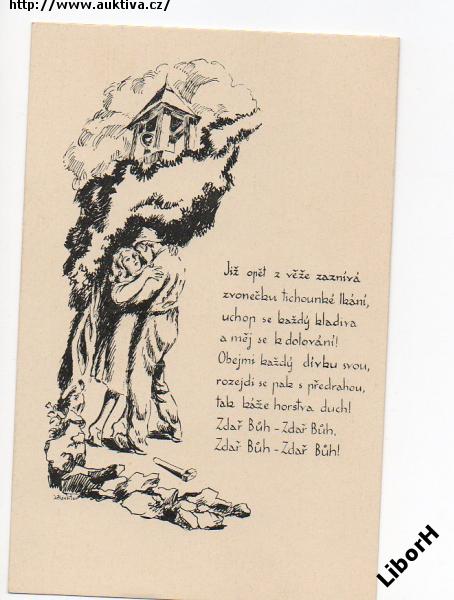 http://www.auktiva.cz/
Již opět z věže zaznívá
zvonečku tichounké lkání,
uchop se každý kladiva
a měj se k dolování!
Obejmi každý dívku svou,
rozejdi se pak s předrahou,
tak káže horstva duch!
Zdař Bůh - Zdař Bůh,
Zdař Bůh - Zdař Bůh!
LiborH